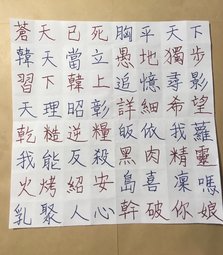 蒼天已死胸平天下
韓天當立愚地獨步
習下韓上追憶尋影
天理昭彰詳細希望
乾糙逆糧皈依我蘿
我能反殺黑肉精靈
火烤紹安島喜凜嗎
乳聚人心幹破你娘